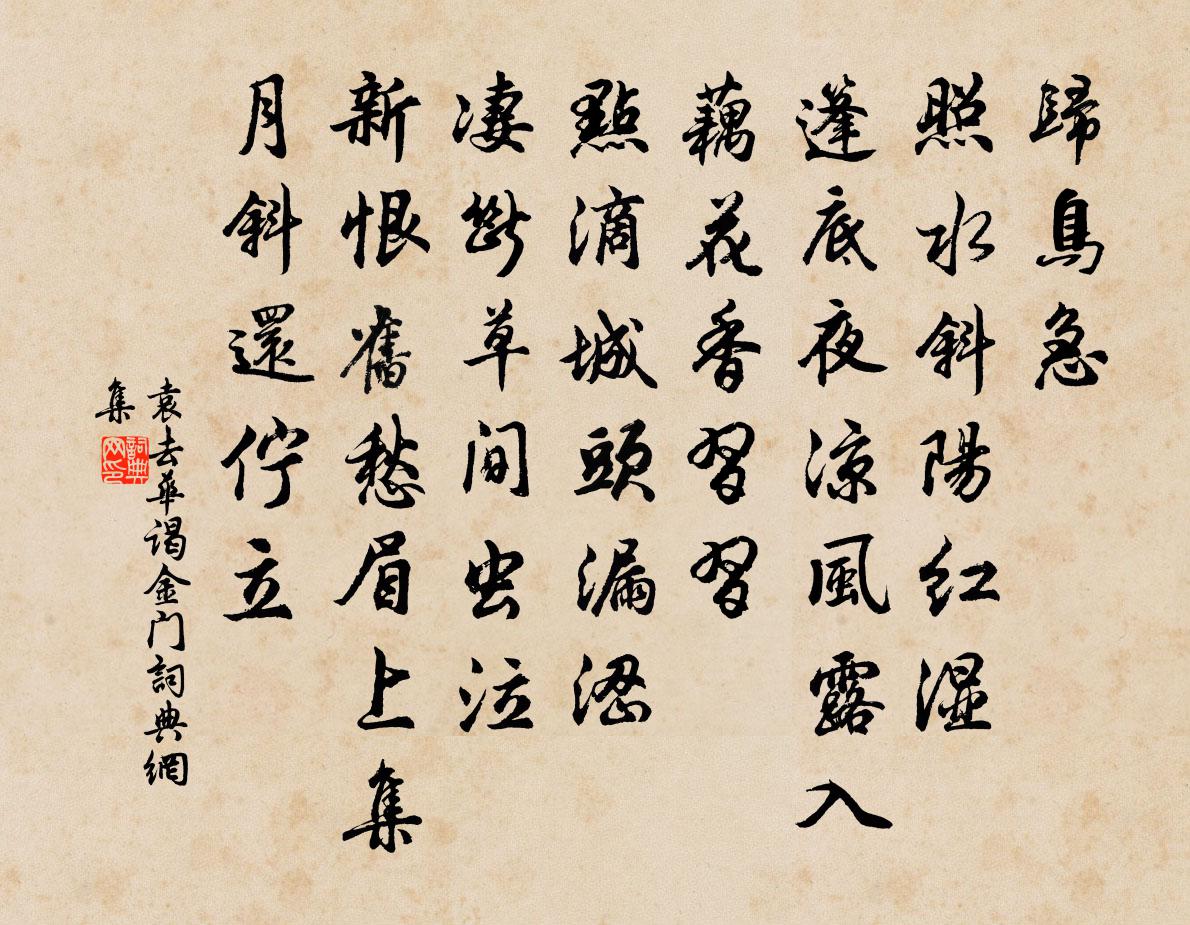 歸鳥急
照水斜陽紅湿
蓬底夜涼風露入
藕花香習習
點滴城頭漏涩
凄斷草間虫泣
新恨舊愁眉上集
月斜還佇立
袁去華谒金门詞典網
集
詞典
网印